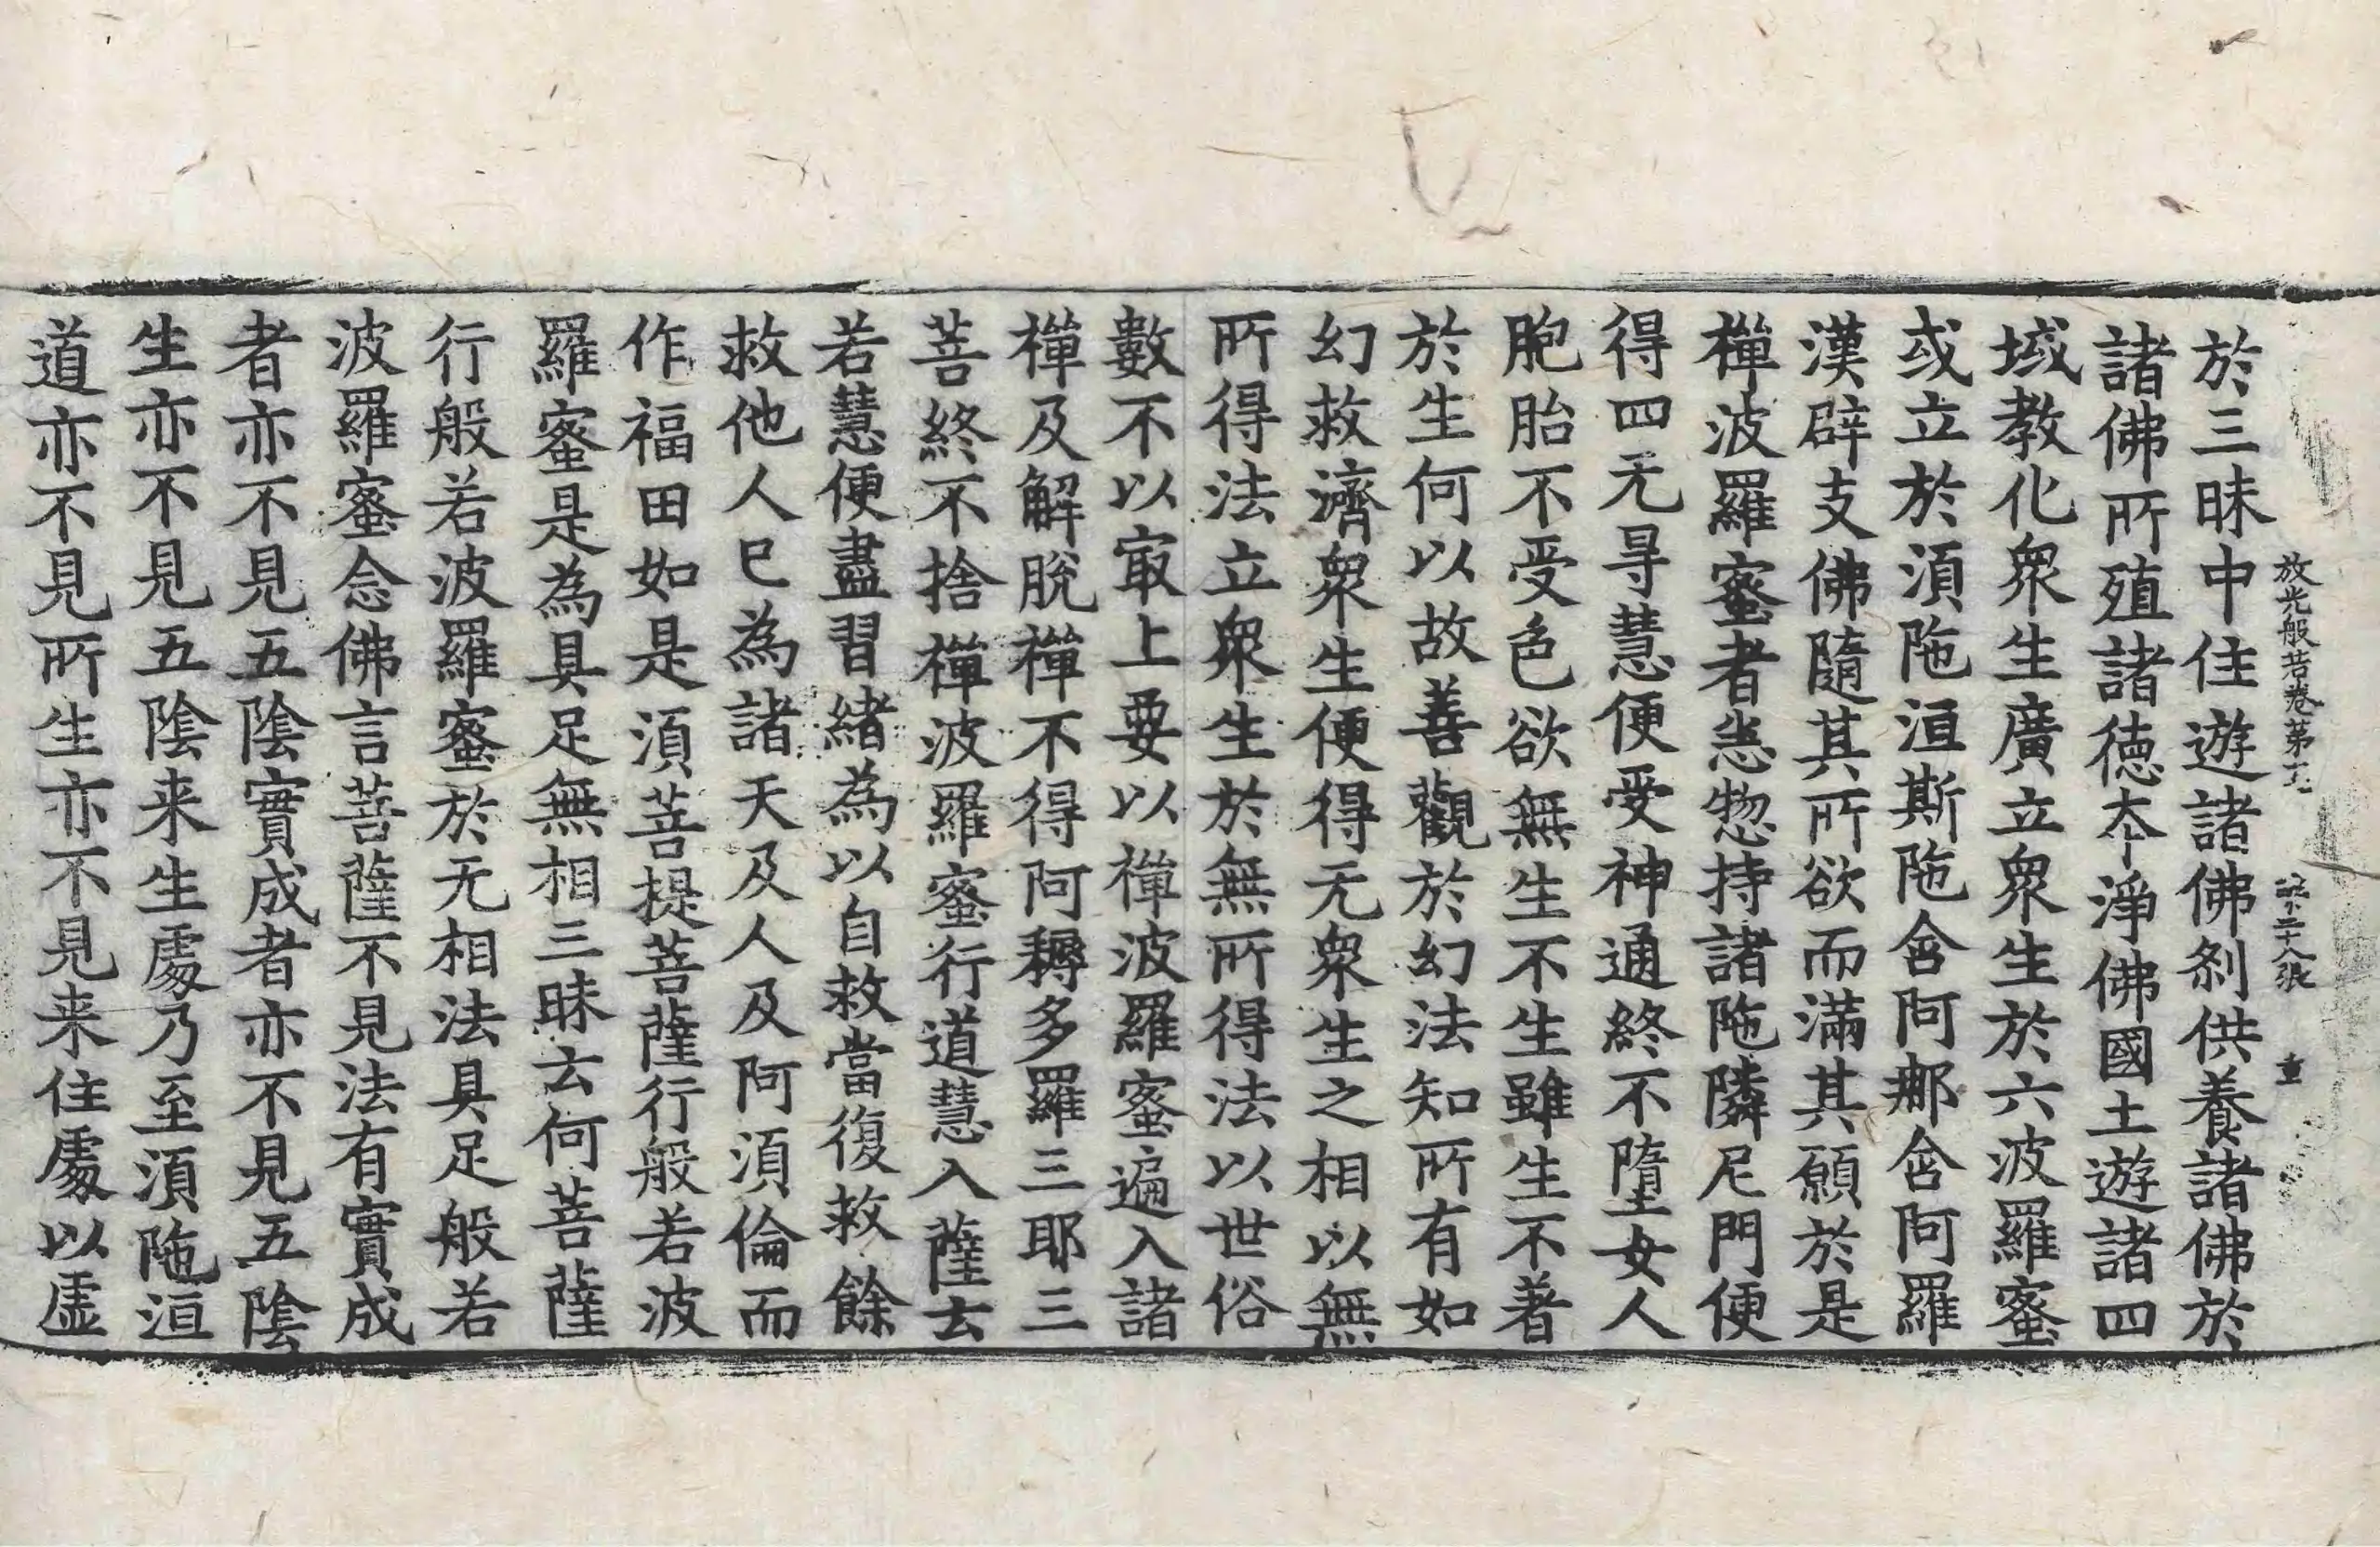 放光般若卷第十 第二十八張 重
於三昧中住遊諸佛刹供養諸佛於
諸佛所殖諸徳夲淨佛國土遊諸四
域教化衆生廣立衆生於六波羅蜜
或立於湏陁洹斯陁含阿那含阿羅
漢辟支佛隨其所欲而滿其願於是
禪波羅蜜者悉惣持諸陁隣尼門便
得四无㝵慧便受神通終不墮女人
胞胎不受色欲無生不生雖生不著
於生何以故善觀於幻法知所有如
幻救濟衆生便得无衆生之相以無
所得法立衆生於無所得法以世俗
數不以㝡上要以禪波羅蜜遍入諸
禪及解脫禪不得阿耨多羅三耶三
菩終不捨禪波羅蜜行道慧入薩云
若慧便盡習緒為以自救當復救餘
救他人已為諸天及人及阿湏倫而
作福田如是湏菩提菩薩行般若波
羅蜜是為具足無相三昧云何菩薩
行般若波羅蜜於无相法具足般若
波羅蜜念佛言菩薩不見法有實成
者亦不見五隂實成者亦不見五隂
生亦不見五隂来生處乃至湏陁洹
道亦不見所生亦不見来住處以虛